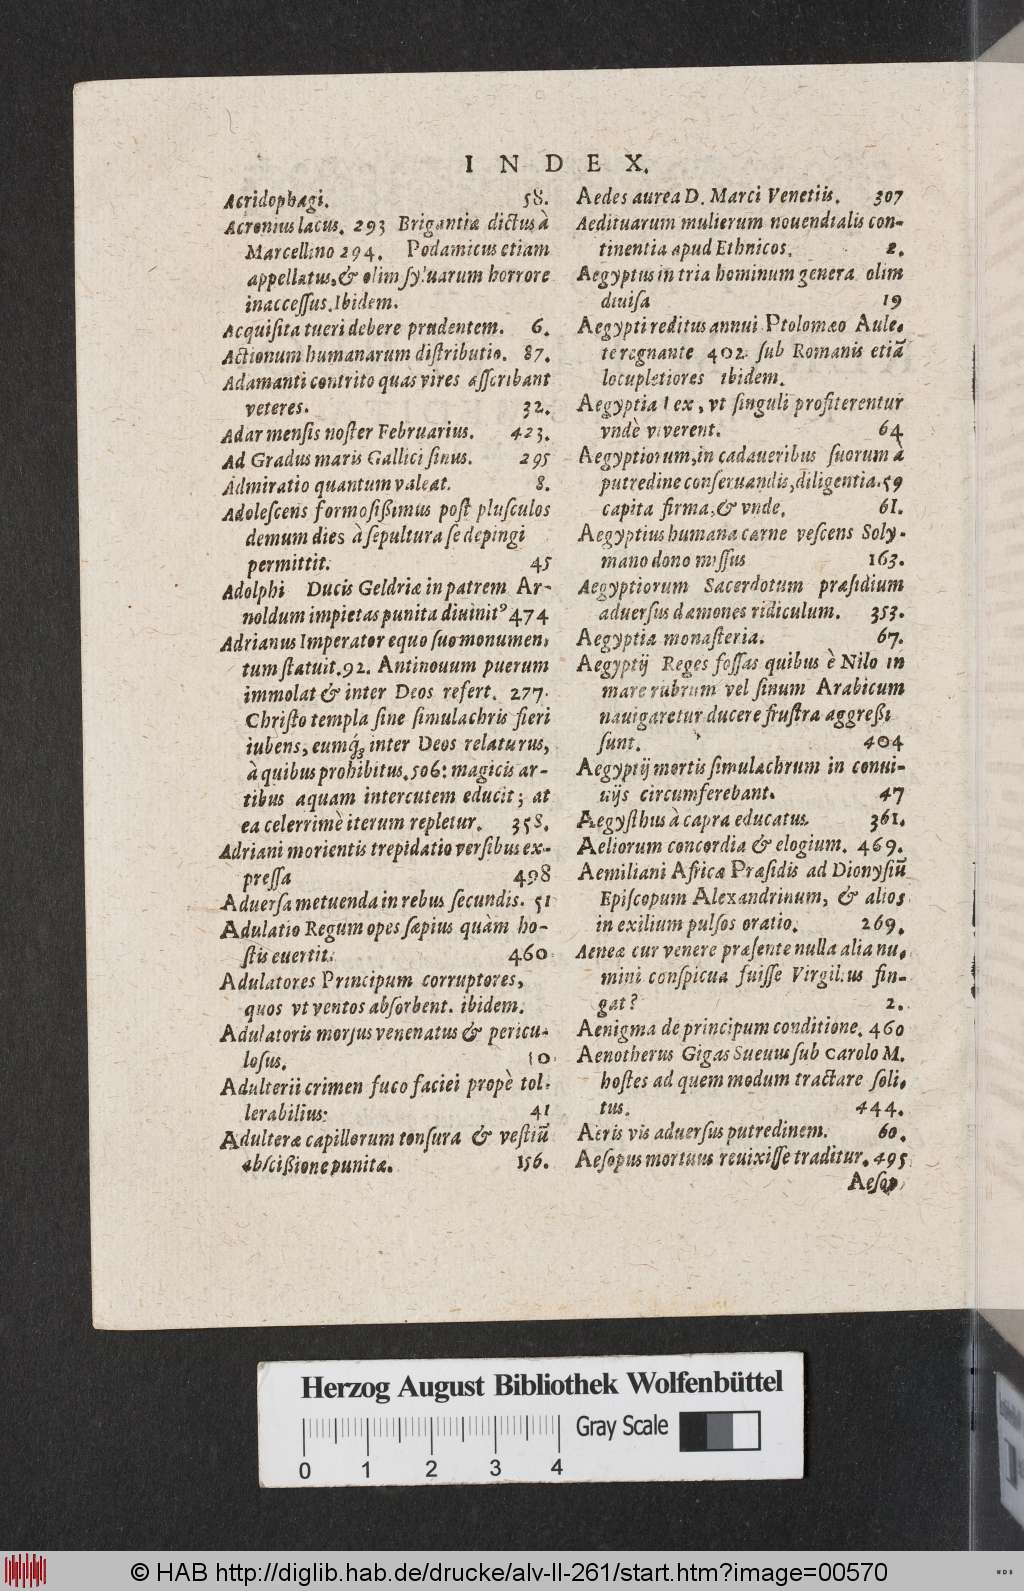 INDEX.
Acridophagi. 58.
Acronius lacus. 293 Brigantiæ dictus à
Marcellino 294. Podamicus etiam
appellatus, & olim syluarum horrore
inaccessus. Ibidem.
Acquisita tueri debere prudentem. 6.
Actionum humanarum distributio. 87.
Adamanti contrito quas vires asscribant
veteres. 32.
Adar mensis noster Februarius. 423.
Ad Gradus maris Gallici sinus. 295
Admiratio quantum valeat. 8.
Adolescens formosißimus post plusculos
demum dies à sepultura se depingi
permittit. 45
Adolphi Ducis Geldriæ in patrem Ar-
noldum impietas punita diuinitꝰ 474
Adrianus Imperator equo suo monumen,
tum statuit. 92. Antinouum puerum
immolat & inter Deos refert. 277.
Christo templa sine simulachris fieri
iubens, eumq́ꝫ inter Deos relaturus,
à quibus prohibitus. 506: magicis ar-
tibus aquam intercutem educit; at
ea celerrimè iterum repletur. 358.
Adriani morientis trepidatio versibus ex-
pressa 498
Aduersa metuenda in rebus secundis. 51
Adulatio Regum opes sæpius quàm ho-
stis euertit. 460
Adulatores Principum corruptores,
quos vt ventos absorbent. ibidem.
Adulatoris morsus venenatus & pericu-
losus. 10
Adulterii crimen fuco faciei propè tol-
lerabilius: 41
Adulteræ capillorum tonsura & vestiũ
abscißione punitæ. 156.
Aedes aurea D. Marci Venetiis. 307
Aedituarum mulierum nouendialis con-
tinentia apud Ethnicos. 2.
Aegyptus in tria hominum genera olim
diuisa 19
Aegypti reditus annui Ptolomæo Aule-
te regnante 402. sub Romanis etiã
locupletiores ibidem.
Aegyptia lex, vt singuli profiterentur
vndè viverent. 64
Aegyptiorum, in cadaueribus suorum à
putredine conseruandis, diligentia. 59
capita firma, & vnde. 61.
Aegyptius humana carne vescens Soly-
mano dono missus 163.
Aegyptiorum Sacerdotum præsidium
aduersus dæmones ridiculum. 353.
Aegyptia monasteria. 67.
Aegyptij Reges fossas quibus è Nilo in
mare rubrum vel sinum Arabicum
nauigaretur ducere frustra aggreßi
sunt. 404
Aegyptij mortis simulachrum in conui-
uijs circumferebant. 47
Aegysthus à capra educatus. 361.
Aeliorum concordia & elogium. 469.
Aemiliani Africæ Præsidis ad Dionysiũ
Episcopum Alexandrinum, & alios
in exilium pulsos oratio. 269.
Aeneæ cur venere præsente nulla alia nu.
mini conspicua fuisse Virgilius fin-
gat? 2.
Aenigma de principum conditione. 460
Aenotherus Gigas Sueuus sub Carolo M.
hostes ad quem modum tractare soli.
tus. 444.
Aeris vis aduersus putredinem. 60.
Aesopus mortuus reuixisse traditur. 495
Aesop.
Herzog August Bibliothek Wolfenbüttel
Gray Scale
0 1 2 3 4
© HAB http://diglib.hab.de/drucke/alv-ll-261/start.htm?image=00570